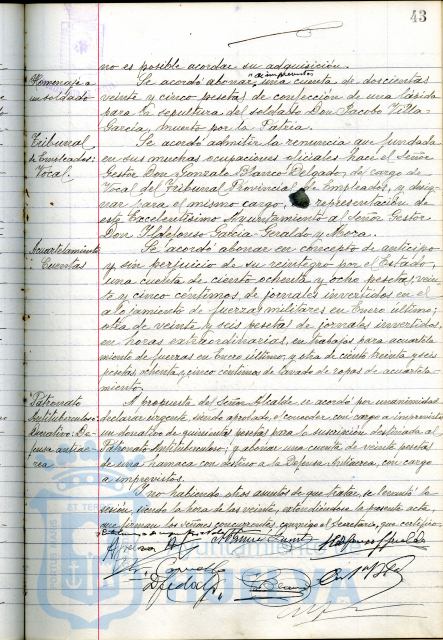 43
no es posible acordar su adquisición.
Homenaje a
un soldado
Se acordó abonar, a imprevistos una cuenta de doscientas
veinte y cinco pesetas de confección de una lápida
para la sepultura del soldado Don Jacobo Villa-
García, muerto por la Patria.
Tribunal
Empleados:
Vocal.
Se acordó admitir la renuncia que fundada
en sus muchas ocupaciones oficiales hace el Señor
Gestor Don Gonzalo Blanco Delgado, de cargo de
Vocal del Tribunal Provincial de Empleados, y desig-
nar para el mismo cargo, representación de
este Excelentísimo Ayuntamiento al Señor Gestor
Don Ildefonso García Geraldo y Moca.
Acuartelamiento
Cuentas
Se acordó abonar en concepto de anticipo
y sin perjuicio de su reintegro por el Estado,
una cuenta de ciento ochenta y ocho pesetas, vein-
te y cinco céntimos, de jornales invertidos en el
alojamiento de fuerzas militares en Enero último;
otra de veinte y seis pesetas de jornales invertidos,
en horas extraordinarias, en trabajos para acuartela-
miento de fuerzas en Enero último, y otra de ciento treinta y seis
pesetas, ochenta y cinco céntimos de lavado de ropas de acuartela-
miento.
Patronato
Antituberculoso:
Donativo: De-
fensa antiaé-
rea
A propuesta del Señor Alcalde se acordó por unanimidad
declarar urgente, siendo aprobado, el conceder, con cargo a imprevistos
un donativo de quinientas pesetas para la suscripción destinada al
Patronato Antituberculoso; y abonar una cuenta de veinte pesetas
de una hamaca con destino a la Defensa Antiaérea, con cargo
a imprevistos.
Y no habiendo otros asuntos de que tratar, se levantó la
sesión siendo la hora de las veinte, extendiéndose la presente acta,
que firman los señores concurrentes, conmigo el Secretario, que certifico.
Ayuntamiento de